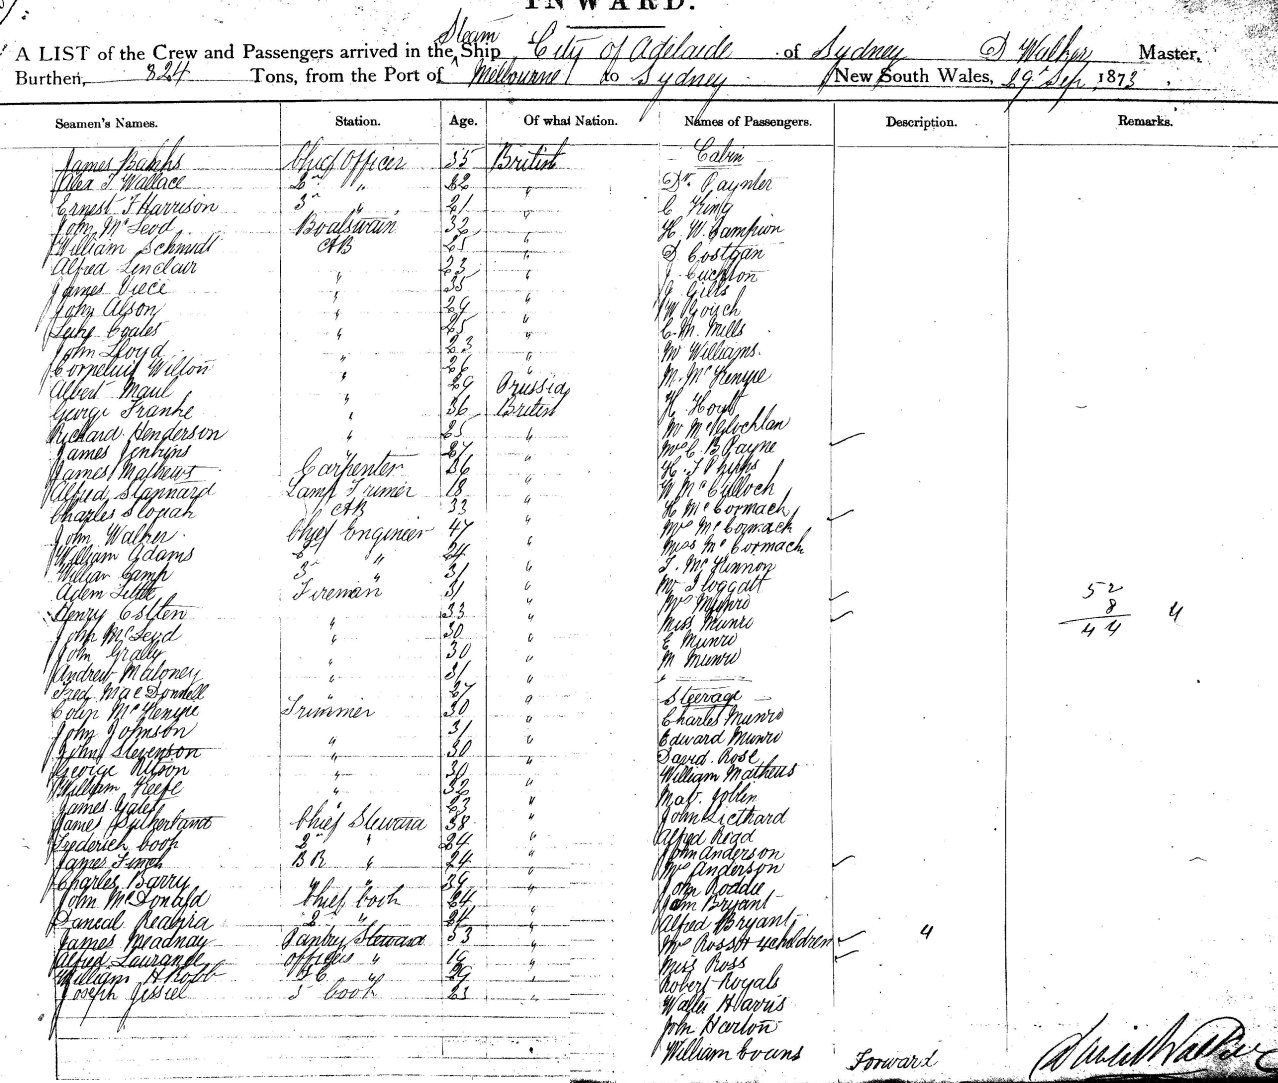 INWARD.
A LIST of the Crew and Passengers arrived in the Steam Ship City of Adelaide of Sydney D Walker Master,
Burthen, 824 Tons, from the Port of Melbourne to Sydney New South Wales, 29 Sep 1873
Seamen's Names. Station. Age. Of what Nation. Names of Passengers. Description. Remarks.
James 35 Chief Officer British Cabin
Alex J Wallace 2nd " 22 " Dr. Paynter
Ernest F Harrison 3rd " 21 " C King
John McLeod Boatswain 32 " H. W. Sampion
William Schmidt AB 25 " D Costgan
Alfred Sinclair " 23 "
James " 35 " Gills
John Alson " 29 " W
Luke Coates " 25 " C. M. Mills
John Lloyd " 23 " Mr Williams.
Cornelius Wilton " 26 " M. McKenzie
Albert Maul " 29 Prussia H. Hoytt
George Franke " 36 British
Richard Henderson " 25 " Mrs C. B Payne
James Jenkins " 27 " H. J Phipps
James Mathews Carpenter 36 " McCulloch
Alfred Stannard Lamp Trimer 18 " H McCormack
Charles AB 33 " Mrs McCormack
John Walker Chief Engineer 47 " Miss McCormack
William Adams 2 " 24 " J. McKinnon
William Camp 3 " 31 " Mr Floggatt
Adam Little Fireman 31 " Mrs Munro
Henry " 33 " Miss Munro
John McLeod " 30 " E Munro
John Grally " 30 " M Munro
Andrew Maloney " 31 "
Fred MacDonnell " 27 " Steerage
Colin McKenzie Trimmer 30 " Charles Munro
John Johnson " 31 " Edward Munro
John Stevenson " 30 " David Rose
George " 30 " William Mathews
William Keefe " 32 "
James Yates " 23 " John
James Sutherland Chief Steward 38 " Alfred Read
Frederick Cook 2nd " 24 " John Anderson
James Finch BR " 24 " Mrs Anderson
Charles Barry " " 39 " John Roddie
John McDonald Chief Cook 24 " Bryant
2 " 24 " Alfred Bryant
James Pantry Steward 33 " Mrs Ross & 4 children 4
Alfred Officers " 19 " Miss Ross
William H Robb " 29 " Robert Royals
Joseph 3 Cook 23 " Walter Harris
John Harton
William Evans Forward
52
8 4
44
David Walker